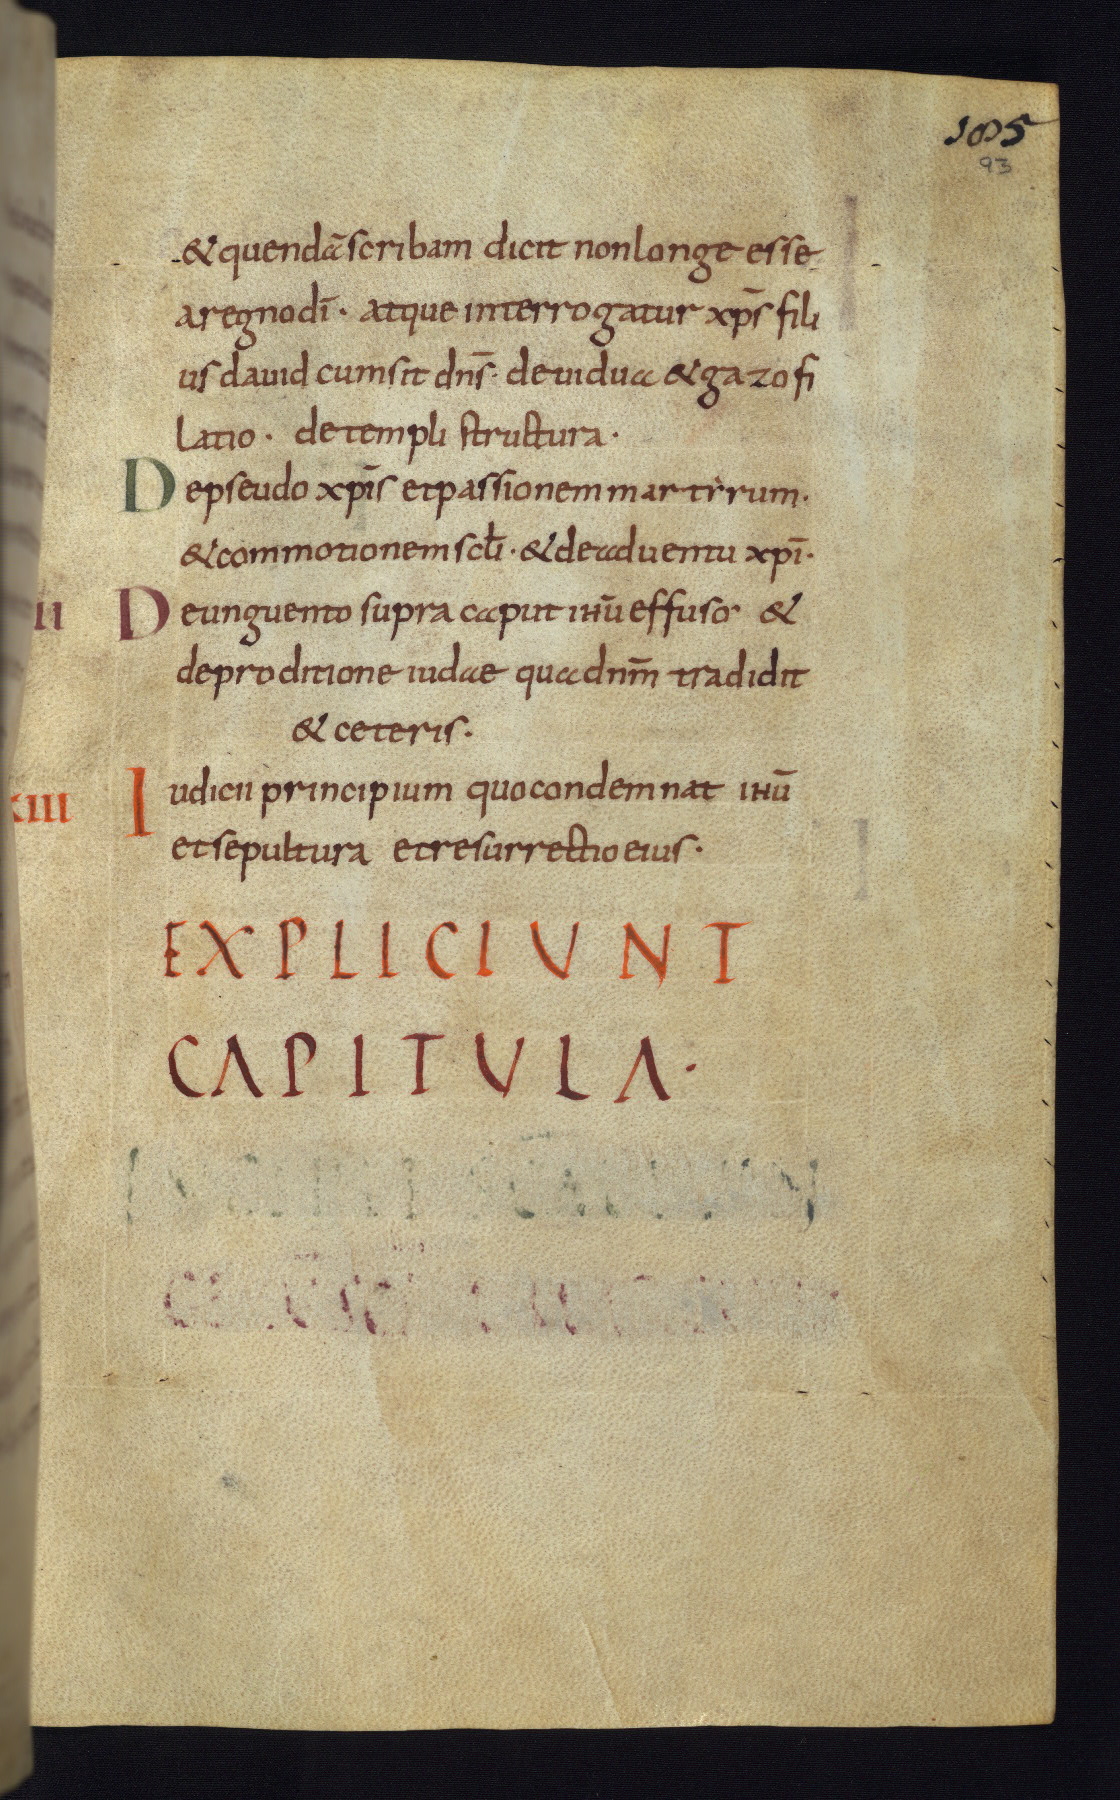 185
93
& quendā scribam dicit non longe esse
a regno dī· atque interrogatur xp̄s fili
us dauid cum sit dn̄s· de uidua & gazofi
latio· de templi structura·
De pseudo xp̄is et passionem martẏrum·
& commotionem scl̄i· & de aduentu xp̄i·
II De unguento supra caput ih̄u effuso &
de proditione iudae qua dn̄m tradidit
& ceteris·
XIII Iudicii principium quo condemnat ih̄ū
et sepultura et resurrectio eius·
EXPLICIUNT
CAPITULA·